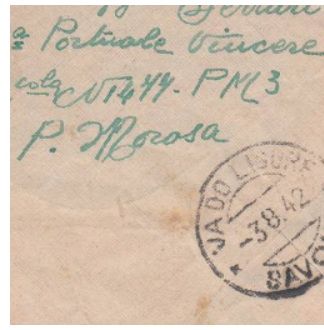 ª Portuale Vincere
cola N1444. PM3
P. Morosa
VADO LIGURE
-3.8.42
SAVO